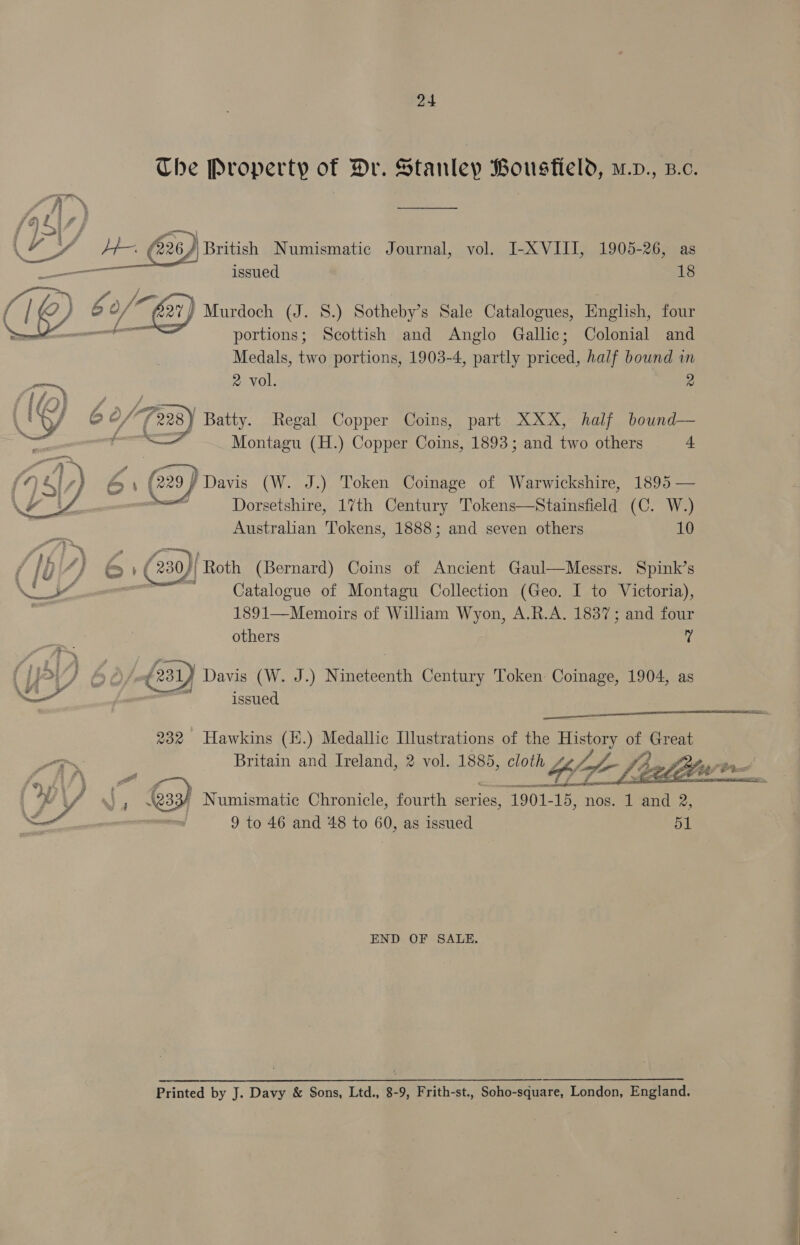 24
The Property of Dr. Stanley Bousfield, M.D., B.C.
226 British Numismatic Journal, vol. I-XVIII, 1905-26, as
issued 18
60/- 227 Murdoch (J. S.) Sotheby's Sale Catalogues, English, four
portions; Scottish and Anglo Gallic; Colonial and
Medals, two portions, 1903-4, partly priced, half bound in
2 vol. 2
60/- 228 Batty. Regal Copper Coins, part XXX, half bound—
Montagu (H.) Copper Coins, 1893; and two others 4
229 Davis (W. J.) Token Coinage of Warwickshire, 1895—
Dorsetshire, 17th Century Tokens—Stainsfield (C. W.)
Australian Tokens, 1888; and seven others 10
230 Roth (Bernard) Coins of Ancient Gaul—Messrs. Spink's
Catalogue of Montagu Collection (Geo. I to Victoria),
1891—Memoirs of William Wyon, A.R.A. 1837; and four
others 7
231 Davis (W. J.) Nineteenth Century Token Coinage, 1904, as
issued
232 Hawkins (E.) Medallic Illustrations of the History of Great
Britain and Ireland, 2 vol. 1885, cloth
233 Numismatic Chronicle, fourth series, 1901-15, nos. 1 and 2,
9 to 46 and 48 to 60, as issued 51
END OF SALE.
Printed by J. Davy & Sons, Ltd., 8-9, Frith-st., Soho-square, London, England.